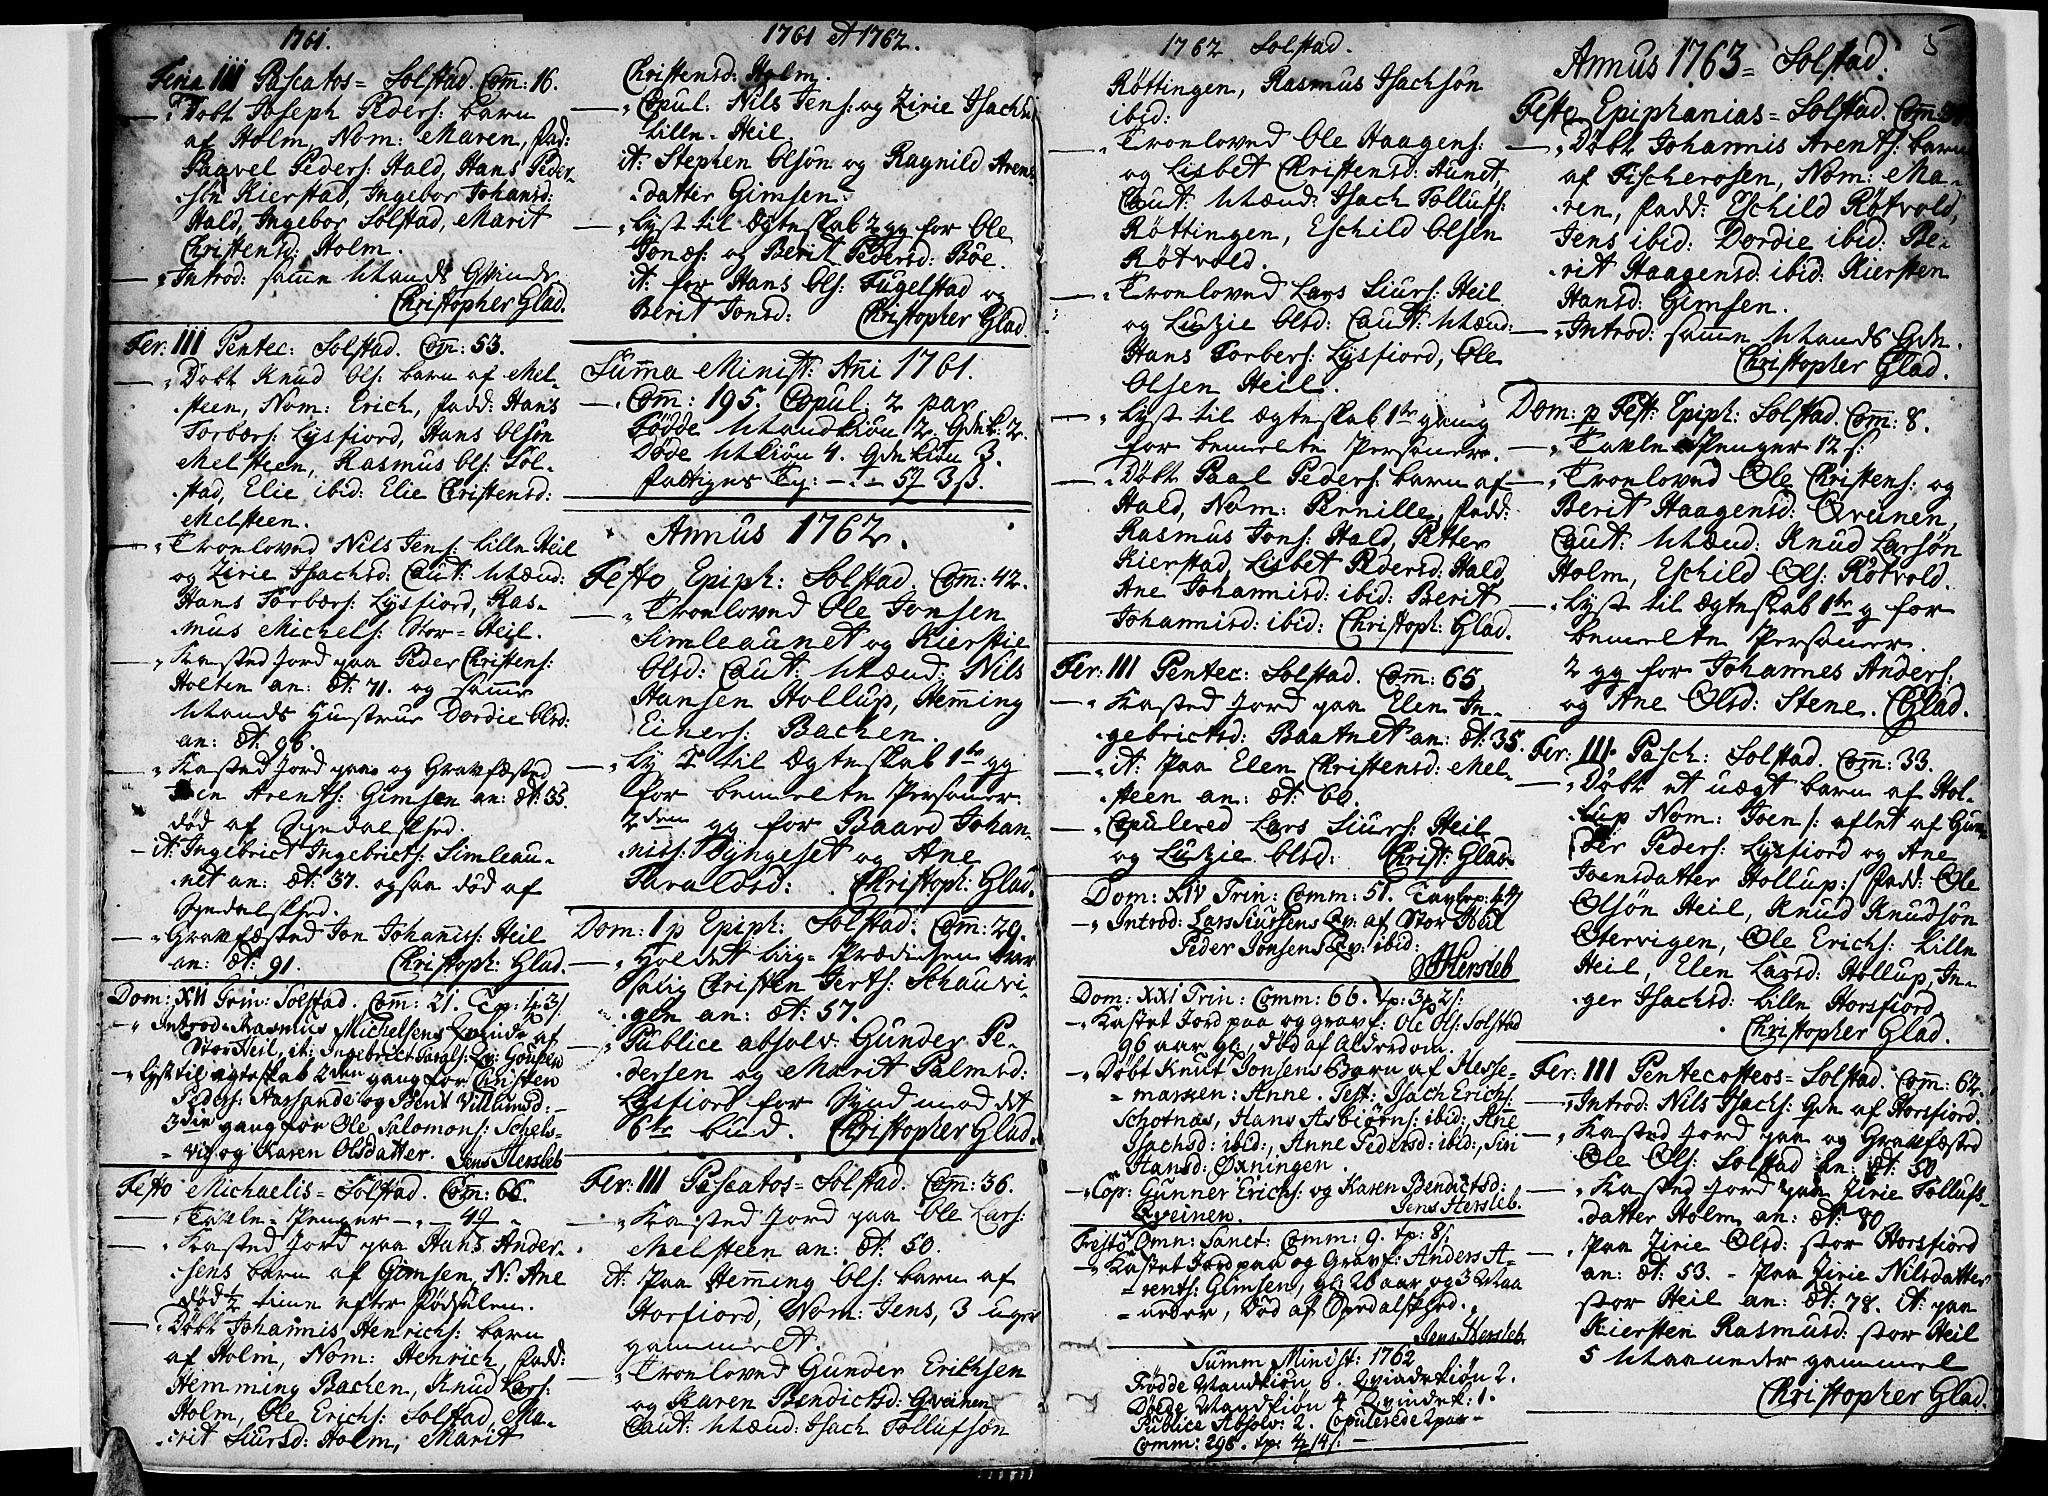 1761.
Feria III Pascatos = Solstad. Com: 16.
Døbt Joseph Peders: barn
af Holm, Nom: Maren, fad:
Paavel Peders: Hald, Hans Peder-
søn Kierstad, Ingebor Johansd:
Hald, Ingebor Solstad, Marit
Christensd: Holm.
Introd: samme Mands Qvinde.
Christopher Glad.
Fer: III Pentec: Solstad. Com: 53.
Døbt Knud Ols: barn af Mel-
steen, Nom: Erich, fadd: Hans
Torbers: Lysfiord, Hans Olsøn
Melsteen, Rasmus Ols: Sol-
stad, Elie ibid: Elie Christensd:
Melsteen.
Troeloved Nils Jens: Lille Heil
og Zirie Isachsd: Caut: Mænd:
Hans Torbers: Lysfiord, Ras-
mus Michels: Stor = Heil.
Kasted Jord paa Peder Christens:
Holten an: æt: 71. og samme
Mands Hustrue Dordie Olsd:
an: æt: 96.
Kasted Jord paa og Gravfæsted
Arents: Gimsen an: æt: 33.
død af
it: Ingebrict Ingebricts: Simleau-
net an: æt: 37. ogsaa død af
Gravfæsted Jon Johaniss: Heil
an: æt: 91. Christoph: Glad.
Dom: XVI Trin: Solstad. Com: 21. Tp: 4 3 s
Introd: Rasmus Michelsens Qvinde af
Stor Heil, it: Ingebrict Tarals: Qv:
Lyst til ægteskab 2den gang for Christen
Peders: Aarsande og Berit Villumsd:
3die gang for Ole Salomons: Schels-
vig og Karen Olsdatter. Jens Hersleb
Festo Michaelis = Solstad. Com: 66.
Tavle = Penger
Kasted Jord paa Hans Ander-
sens barn af Gimsen, N: Ane
død 1/2 time efter fødselen.
Døbt Johannis Henrichs: barn
af Holm, Nom: Henrich, fadd:
Hemming Bachen, Knud Lars:
Holm, Ole Erichs: Solstad, Ma-
rit Siursd: Holm, Marit
1761 et 1762.
Christensd: Holm.
Copul: Nils Jens: og Zirie Isachsd:
Lille = Heil.
it: Stephen Olsøn og Ragnild Arens
datter Gimsen.
Lyst til Ægteskab 2 gg for Ole
Jonæs: og Berit Pedersd: Böe.
it: for Hans Ols: Fugelstad og
Berit Jonsd: Christopher Glad
Summa Minist: Ani 1761.
Com: 195. Copul: 2 par
Fødde Mandkiøn 2. Qdek: 2.
Døde Mkiøn 4. Qdekiøn 3.
fattiges
Annus 1762.
Festo Epiph: Solstad. Com: 42.
Troeloved Ole Jonsen
Simleaunet og Kierstie
Olsd: Caut: Mænd: Nils
Hansen Hollup, Hemming
Einers: Bachen.
Lyst til Ægteskab 1te gg
for bemelte Personer.
2den gg for Baard Johan-
nis: Byngeset og Ane
Taraldsd: Christoph: Glad.
Dom: 1 p Epiph: Solstad. Com: 29.
Holdet Liig = Prædicken over
salig Christen Gerts: Schauvi-
gen an: æt: 57.
Publice absolv: Gunder Pe-
dersen og Marit Palmsd:
Lysfiord for Synd mod det
6te bud. Christopher Glad.
Fer: III Pascatos = Solstad. Com: 36.
Kasted Jord paa Ole Lars:
Melsteen an: æt: 50.
it: Paa Hemming Ols: barn af
Horsfiord, Nom: Jens, 3 uger
gammel.
Troeloved Gunder Erichsen
og Karen Bendictsd: Qveinen
Caut: Mænd: Isach Tollufsøn
1762 Solstad.
Röttingen, Rasmus Isachsön
ibid:
Troeloved Ole Haagens:
og Lisbet Christensd: Aunet,
Caut: Mænd: Isach Tollufs:
Röttingen, Eschild Olsen
Rötvold.
Troeloved Lars Siurs: Heil
og Lutzie Olsd: Caut: Mænd:
Hans Torbers: Lysfiord, Ole
Olsen Heil.
Lyst til Ægteskab 1te gang
for bemelte Personer.
Døbt Paal Peders: barn af
Hald, Nom: Pernille, fadd:
Rasmus Jons: Hald, Petter
Kierstad, Lisbet Pedersd: Hald,
Ane Johannisd: ibid: Berit
Johannisd: ibid: Christoph: Glad.
Fer: III Pentec: Solstad. Com: 65.
Kasted Jord paa Elen In-
gebrictsd: Baatnet an: æt: 35.
it: Paa Elen Christensd: Mel-
steen an: æt: 60.
Copulered Lars Siurs: Heil
og Lutzie Olsd: Christ: Glad.
Dom: XIV Trin: Comm: 51. Tavlep: 44 s
Introd: Lars Siursens Qv. af Stor Heil
Peder Jonsens Qv: ibid:
J Hersleb
Dom: XXI Trin: Comm: 66. tp: 3 2 s:
Kastet Jord paa og gravf: Ole Ols: Solstad
96 aar gl, død af Alderdom.
Døbt Knut Jonsens Barn af Hesse-
marken: Anne. Test: Isach Erichs:
Schotnas, Hans Asbiørns: ibid: Ane
Isachsd: ibid:, Anne Pedersd: ibid:, Siri
Hansd: Oxningen.
Cop: Gunner Erichs: og Karen Bendictsd:
Qveinen. Jens Hersleb.
Festo Omn: Sanct: Comm: 9. tp: 8 s:
Kastet Jord paa og Gravf: Anders A-
rents: Gimsen, gl: 20 aar og 3 Maa-
neder, død af
Jens Hersleb
Summ Minist: 1762
Fødde Mandkiøn 6. Qvindekiøn 2.
Døde Mandkiøn 4 Qvindek: 1.
Publice Absolv: 2. Copulerede 2 par
Comm: 298. tp: 4 14 s:
5
Annus 1763 = Solstad.
Festo Epiphanias = Solstad. Com:
Døbt Johannis Arents: barn
af Fischerosen, Nom: Ma-
ren, fadd: Eschild Rötvold,
Jens ibid: Dordie ibid: Be-
rit Haagensd: ibid: Kiersten
Hansd: Gimsen.
Introd: samme Mands Qde.
Christopher Glad.
Dom: p Fest: Epiph: Solstad. Com: 8.
Tavle Penger 12 s:
Troeloved Ole Christens: og
Berit Haagensd: Qveinen,
Caut: Mænd: Knud Larsön
Holm, Eschild Ols: Rötvold.
Lyst til Ægteskab 1te g for
bemelte Personer.
2 gg for Johannes Anders:
og Ane Olsd: Stene. CGlad.
Fer: III. Pasch: Solstad. Com: 33.
Døbt et uægt barn af Hol-
lup Nom: Joen /: aflet af Gun-
der Peders: Lysfiord og Ane
Joensdatter Hollup :/ fadd: Ole
Olsön Heil, Knud Knudsön
Stervigen, Ole Erichs: Lille
Heil, Elen Larsd: Hollup, In-
ger Isachsd: Lille Horsfiord
Christopher Glad.
Fer: III Pentecosteos = Solstad. Com: 62.
Introd: Nils Isachs: Qde af Horsfiord.
Kasted Jord paa og Gravfæsted
Ole Ols: Solstad an: æt: 50
Kasted Jord paa Zirie Tollufs-
datter Holm an: æt: 80
Paa Zirie Olsd: Stor Horsfiord
an: æt: 53. = Paa Zirie Nilsdatter
Stor Heil an: æt: 78. it: paa
Kiersten Rasmusd: Stor Heil
5 Maaneder gammel
Christopher Glad.